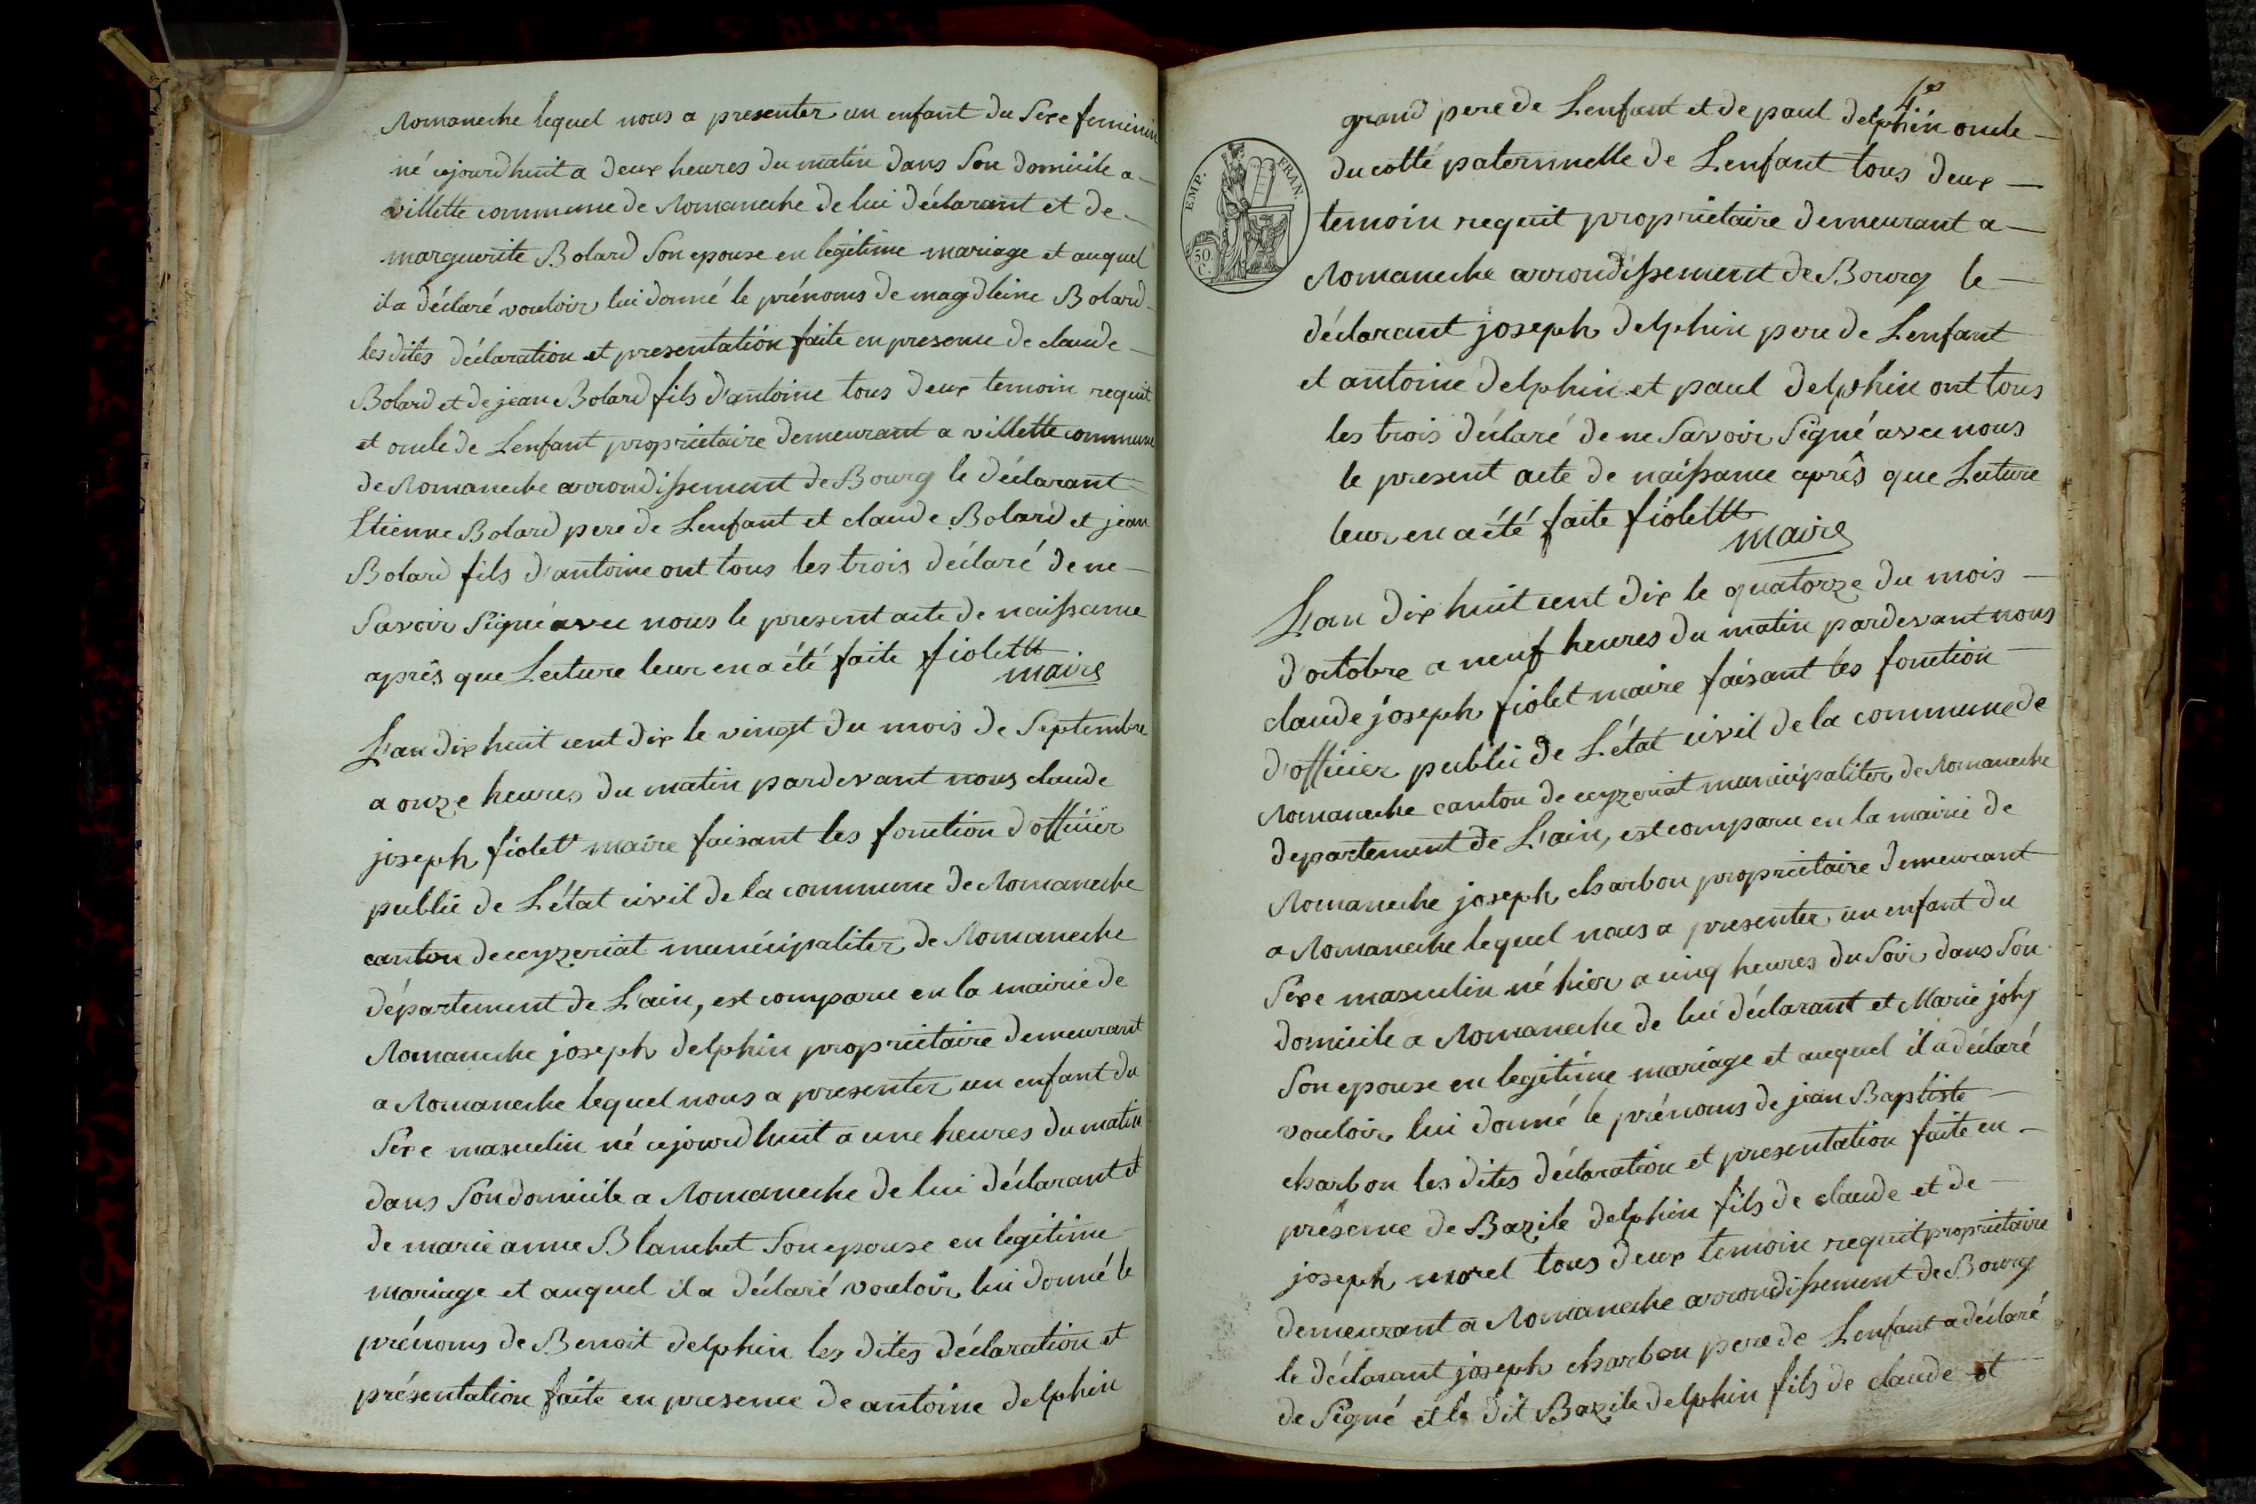 Romaneche lequel nous a presenter un enfant du Sexe feminin
né cejourdhuit a deux heures du matin dans Son domicile a
villette commune de Romaneche de lui déclarant et de
marguerite Bolard Son epouse en legitime mariage et auquel
il a déclaré vouloir lui donné le prénoms de magdleine Bolard
les dites déclaration et presentation faite en presence de claude
Bolard et de jean Bolard fils d'antoine tous deux temoin requit
et oncle de Lenfant proprietaire demeurant a villette commune
de Romaneche arrondissement de Bourg le déclarant
Etienne Bolard pere de Lenfant et claude Bolard et jean
Bolard fils d'antoine ont tous les trois déclaré de ne
Savoir Signé avec nous le present acte de naissance
après que Lecture leur en a été faite fiolett
maire
L'an dix huit cent dix le vingt du mois de Septembre
a onze heures du matin pardevant nous claude
joseph fiolet maire faisant les fonction d'officier
public de L'état civil de la commune de Romaneche
canton de ceyzeriat municipaliter de Romaneche
département de L'ain, est comparu en la mairie de
Romaneche joseph delphin proprietaire demeurant
a Romaneche lequel nous a presenter un enfant du
Sexe masculin né cejourdhuit a une heures du matin
dans Son domicile a Romaneche de lui déclarant et
de marie anne Blanchet Son epouse en legitime
mariage et auquel il a déclaré vouloir lui donné le
prénoms de Benoit delphin les dites déclaration et
présentation faite en presence de antoine delphin
4.
grand pere de Lenfant et de paul delphin oncle
du cotté paternnelle de Lenfant tous deux
EMP. FRAN.
50 C.
temoin requit proprietaire demeurant a
Romaneche arrondissement de Bourg le
déclarant joseph delphin pere de Lenfant
et antoine delphin et paul delphin ont tous
les trois déclaré de ne Savoir Signé avec nous
le present acte de naissance après que Lecture
leur en a été faite fiolett
maire
L'an dix huit cent dix le quatorze du mois
d'octobre a neuf heures du matin pardevant nous
claude joseph fiolet maire faisant les fonction
d'officier public de L'état civil de la commune de
Romaneche canton de ceyzeriat municipaliter de Romaneche
departement de L'ain, est comparu en la mairie de
Romaneche joseph charbon proprietaire demeurant
a Romaneche lequel nous a presenter un enfant du
Sexe masculin né hier a cinq heures du Soir dans Son
domicile a Romaneche de lui déclarant et Marie joly
Son epouse en legitime mariage et auquel il a déclaré
vouloir lui donné le prénoms de jean Baptiste
charbon les dites déclaration et presentation faite en
présence de Bazile delphin fils de claude et de
joseph morel tous deux temoin requit proprietaire
demeurant a Romaneche arrondissement de Bourg
le déclarant joseph charbon pere de Lenfant a déclaré
de Signé et le dit Bazile delphin fils de claude et